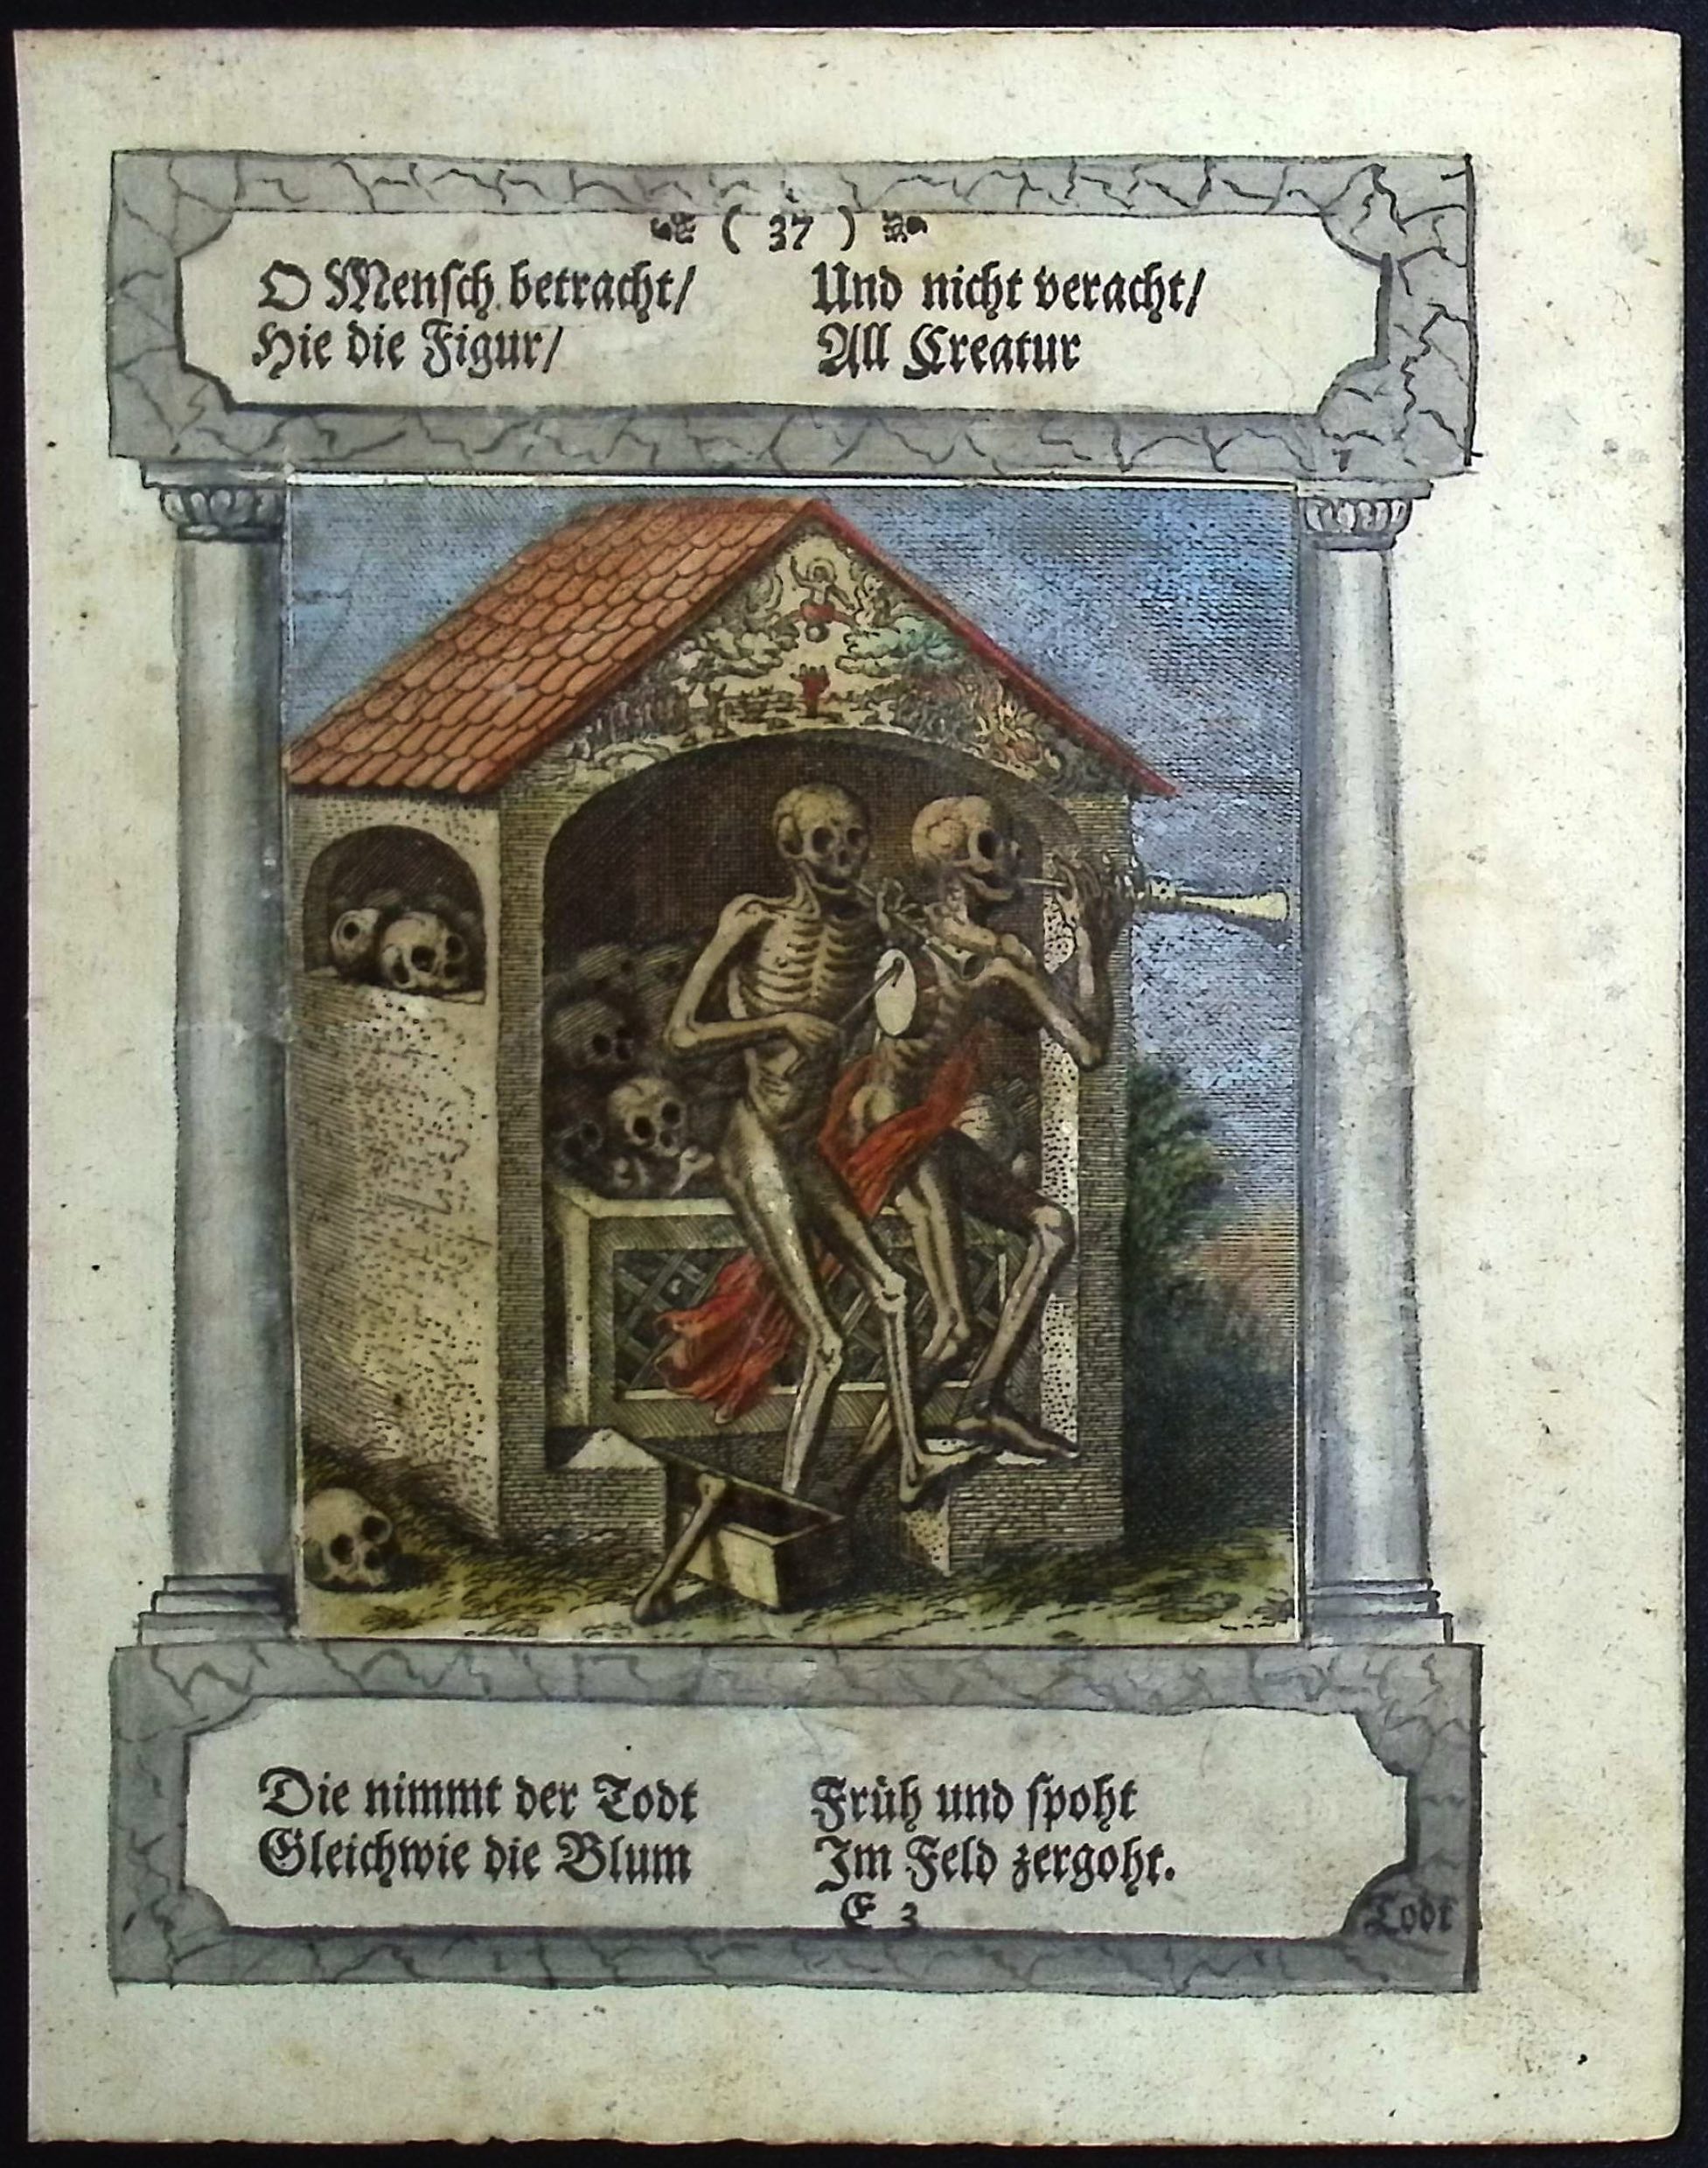 ( 37 )
O Mensch betracht/ Und nicht veracht/
Hie die Figur/ All Creatur
Die nimmt der Todt Früh und spoht
Gleichwie die Blum Im Feld zergoht.
E 3
Todt